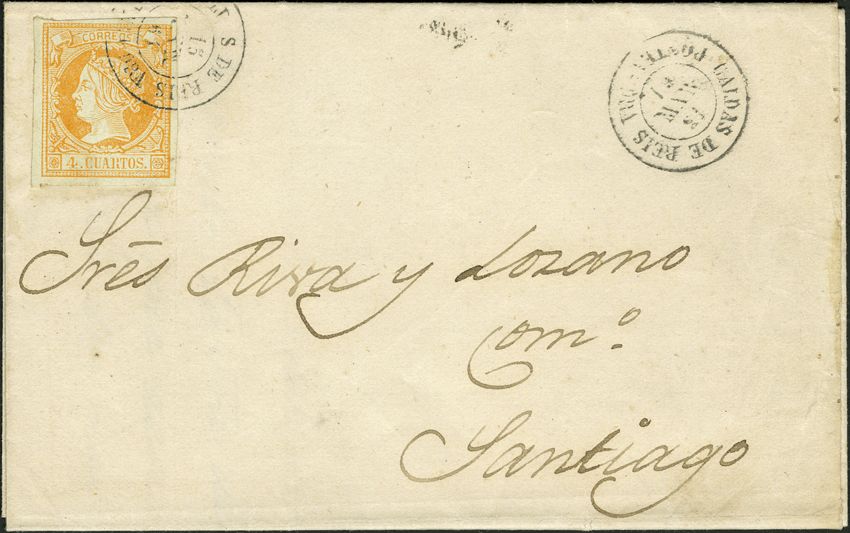 CORREOS
4. CUARTOS.
S DE REIS
15
CALDAS DE REIS
Srẽs Riva y Lozano
Comº.
Santiago